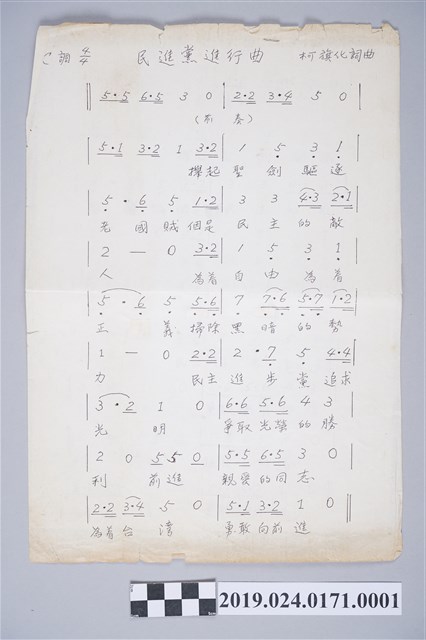 C調 4/4 民進黨進行曲 柯旗化詞曲
5·5 6·5 3 0 | 2·2 3·4 5 0
(前奏)
5·1 3·2 1 3·2 | 1 5 3 1
攑起 聖劍 驅逐
5·6 5 1·2 | 3 3 4·3 2·1
老國賊 個是 民主的敵
2 — 0 3·2 | 1 5 3 1
人 為着 自由 為着
5·6 5 5·6 | 7 7·6 5·7 1·2
正義 掃除 黑暗的勢
1 — 0 2·2 | 2·7 5 4·4
力 民主 進步黨 追求
3·2 1 0 | 6·6 5·6 4 3
光明 爭取 光榮的勝
2 0 5 5 0 | 5·5 6·5 3 0
利 前進 親愛的同志
2·2 3·4 5 0 | 5·1 3·2 1 0
為着台湾 勇敢向前進
2019.024.0171.0001